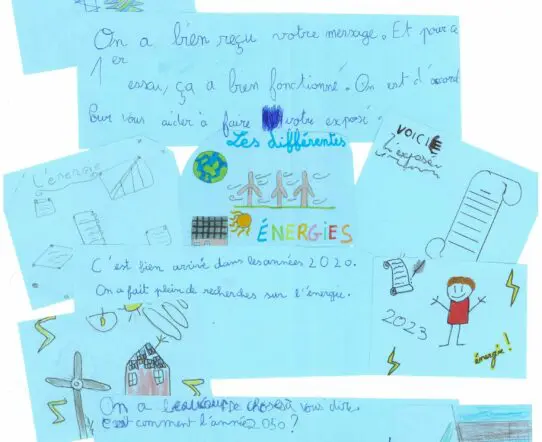 On a bien reçu votre message. Et pour ce
1er
essai, ça a bien fonctionné. On est d'accord
Pour vous aider à faire votre exposé.
Les différentes
ÉNERGIES
L'énergie
VOICIE
l'exposé
C'est bien arrivé dans les années 2020.
On a fait plein de recherches sur l'énergie.
2023
énergie !
On a beaucoup de choses à vous dire.
c'est comment l'année 2050 ?